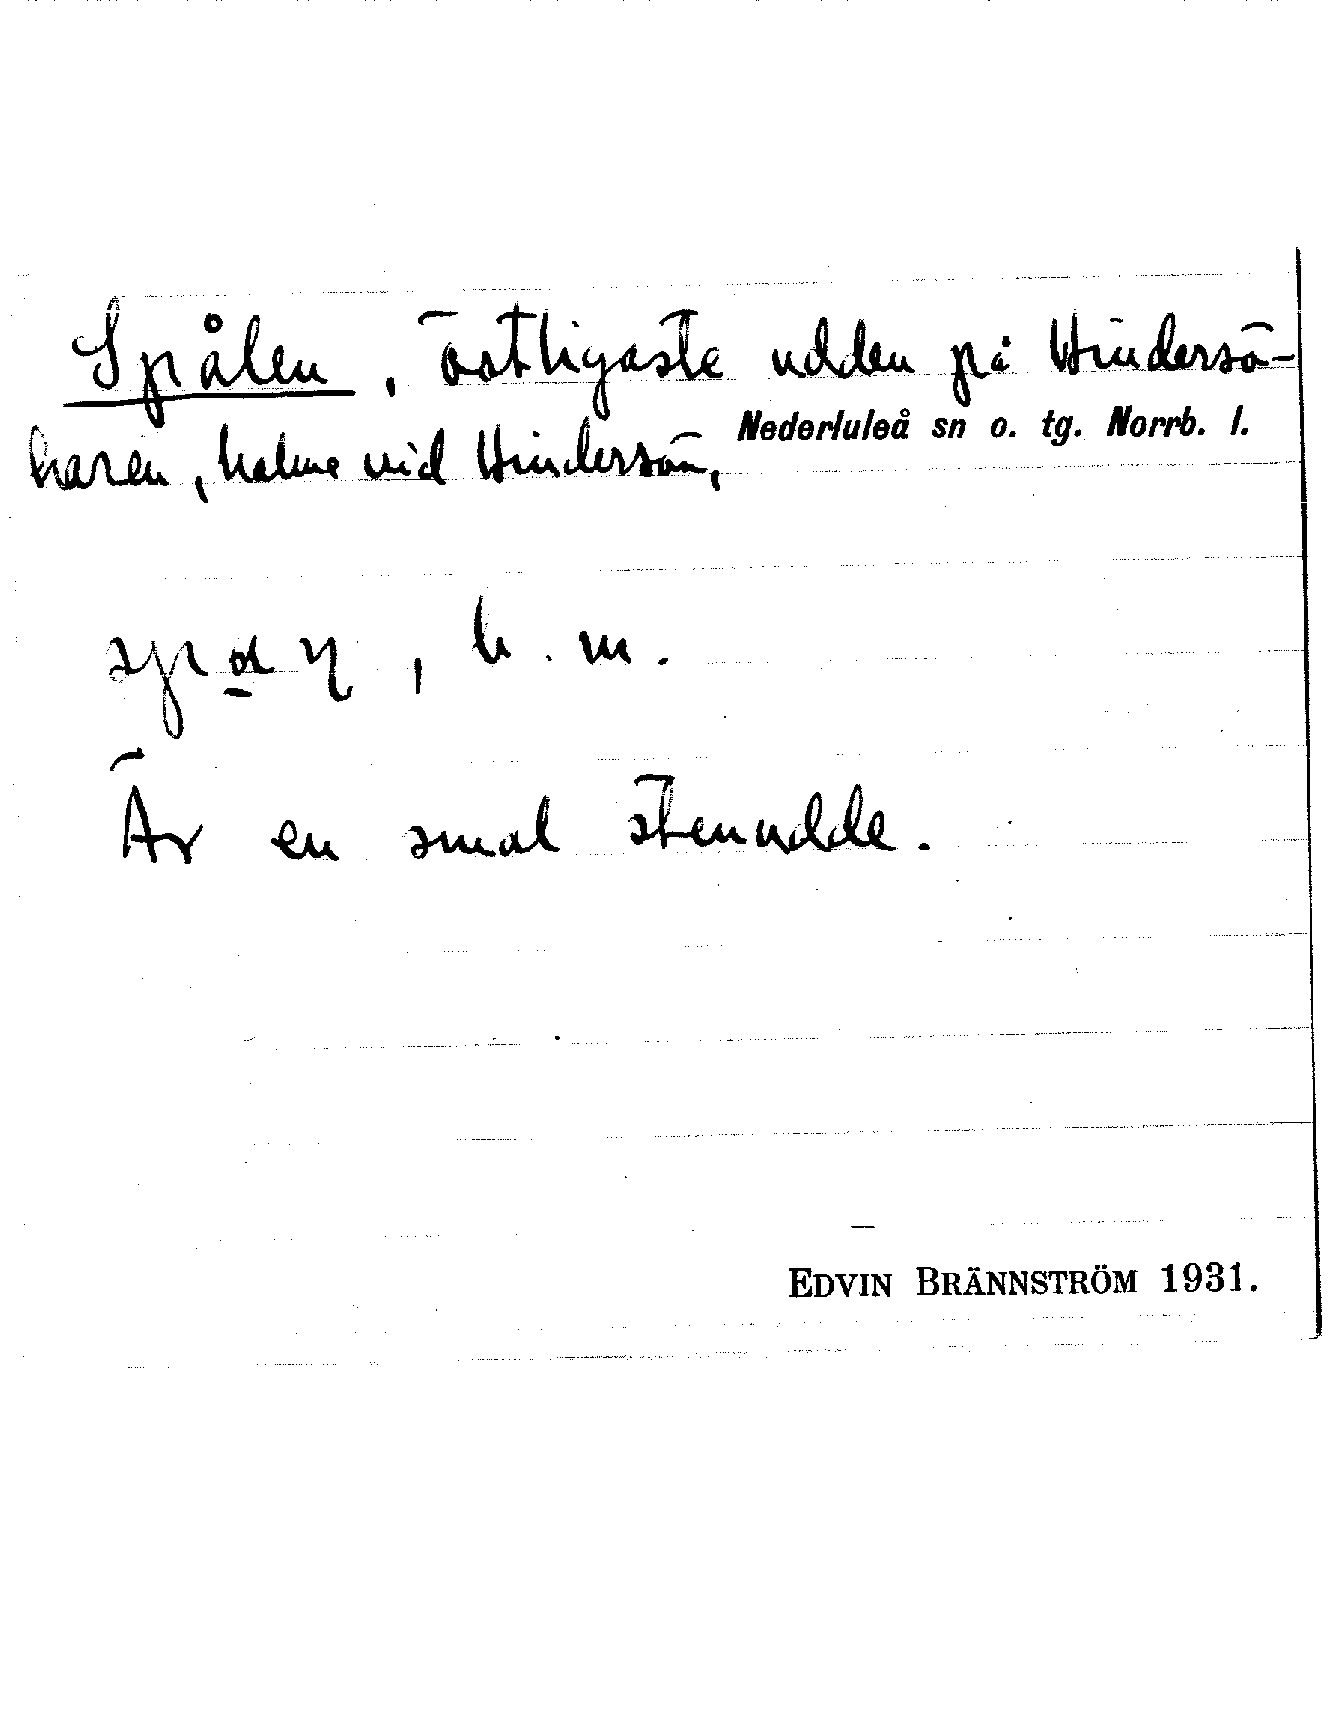 Spålen, östligaste udden på Hindersö-
haren, holme vid Hindersön,
Nederluleå sn o. tg. Norrb. l.
b. m.
Är en smal stenudde.
EDVIN BRÄNNSTRÖM 1931.